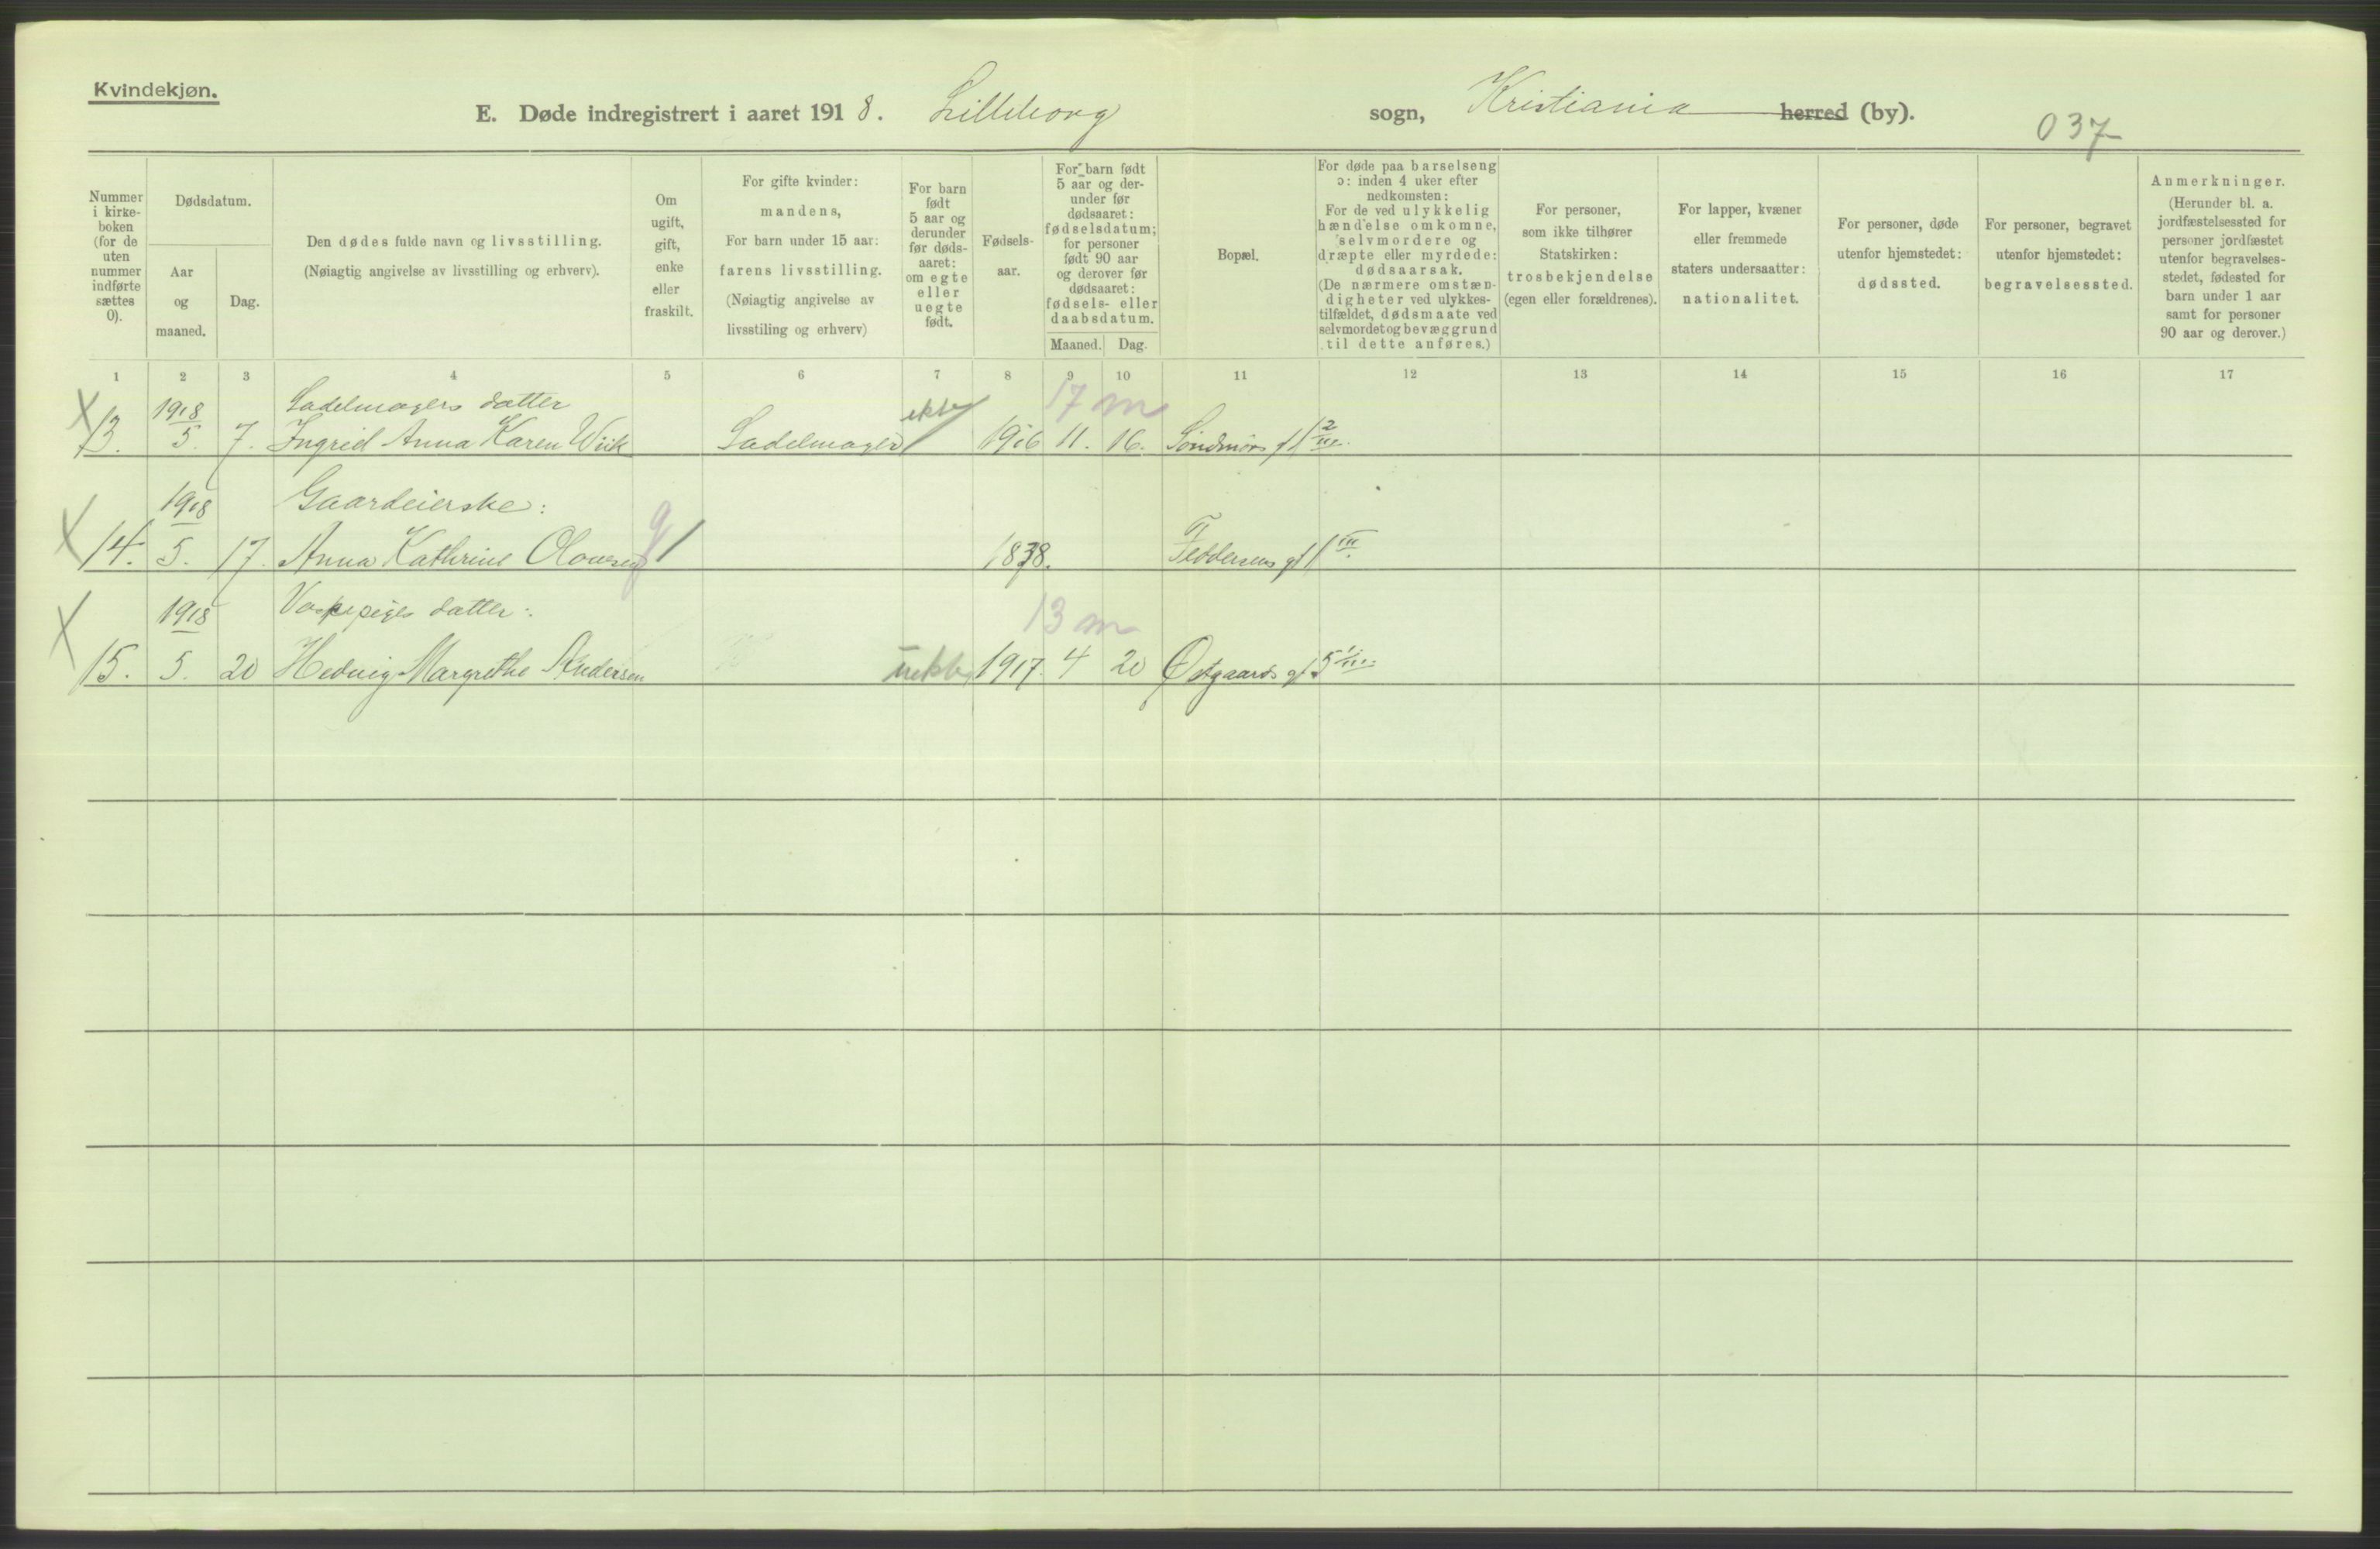 Kvindekjøn.
E. Døde indregistrert i aaret 1918. Lilleborg sogn, Kristiania herred (by).
037
Nummer i kirke-boken (for de uten nummer indførte sættes 0).
Dødsdatum.
Aar og maaned.
Dag.
Den dødes fulde navn og livsstilling.
(Nøiagtig angivelse av livsstilling og erhverv).
Om ugift, gift, enke eller fraskilt.
For gifte kvinder: mandens,
For barn under 15 aar: farens livsstilling.
(Nøiagtig angivelse av livsstiling og erhverv)
For barn født 5 aar og derunder før døds-aaret: om egte eller uegte født.
Fødsels-aar.
For barn født 5 aar og der-under før dødsaaret: fødselsdatum; for personer født 90 aar og derover før dødsaaret: fødsels- eller daabsdatum.
Maaned. Dag.
Bopæl.
For døde paa barselseng ɔ: inden 4 uker efter nedkomsten:
For de ved ulykkelig hændelse omkomne, selvmordere og dræpte eller myrdede: dødsaarsak.
(De nærmere omstæn-digheter ved ulykkes-tilfældet, dødsmaate ved selvmordet og bevæggrund til dette anføres.)
For personer, som ikke tilhører Statskirken: trosbekjendelse (egen eller forældrenes).
For lapper, kvæner eller fremmede staters undersaatter: nationalitet.
For personer, døde utenfor hjemstedet: dødssted.
For personer, begravet utenfor hjemstedet: begravelsessted.
Anmerkninger.
(Herunder bl. a. jordfæstelsessted for personer jordfæstet utenfor begravelses-stedet, fødested for barn under 1 aar samt for personer 90 aar og derover.)
1 2 3 4 5 6 7 8 9 10 11 12 13 14 15 16 17
1918 Sadelmagers datter 17 m
X 13. 5. 7. Ingrid Anna Karen Wiik Sadelmager ekte 1916 11. 16. Søndmørs gt 12 III
1918 Gaardeierske:
X 14. 5. 17. Anna Kathrine Olousen g 1838. Feddersens gt 1 III
1918 Vaskepiges datter: 13 m
X 15. 5. 20 Hedvig Margrethe Andersen uekte 1917. 4 20 Østgaards gt 5